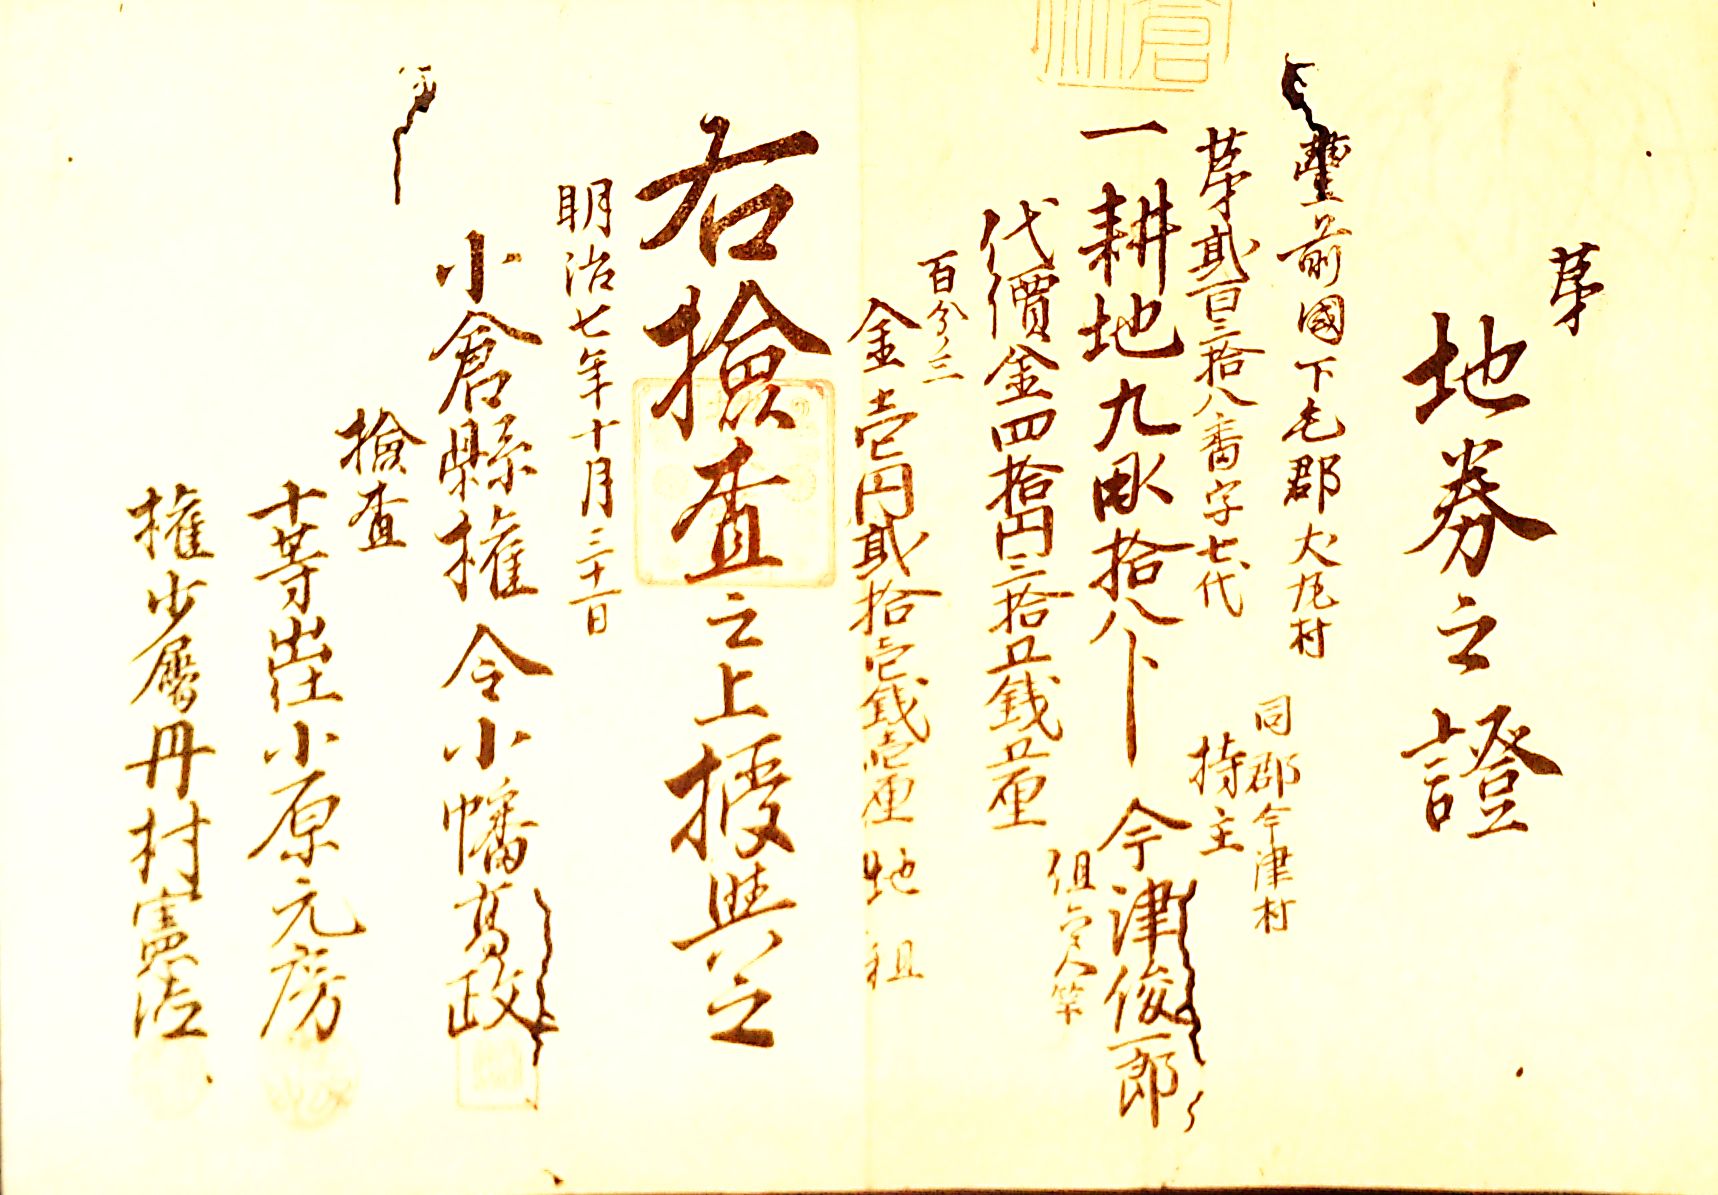 第
地券之證
豐前國下毛郡犬丸村
第貳百三拾八番字七代
同郡今津村
持主
一耕地九畝拾八卜
今津俊一郎
代價金四拾円三拾五錢五厘
百分三
金壱円貳拾壱錢壱厘 地租
右撿査之上授與之
明治七年十月三十一日
小倉縣權令小幡高政
撿査
十等出仕小原元房
權少属丹村憲浩
倉